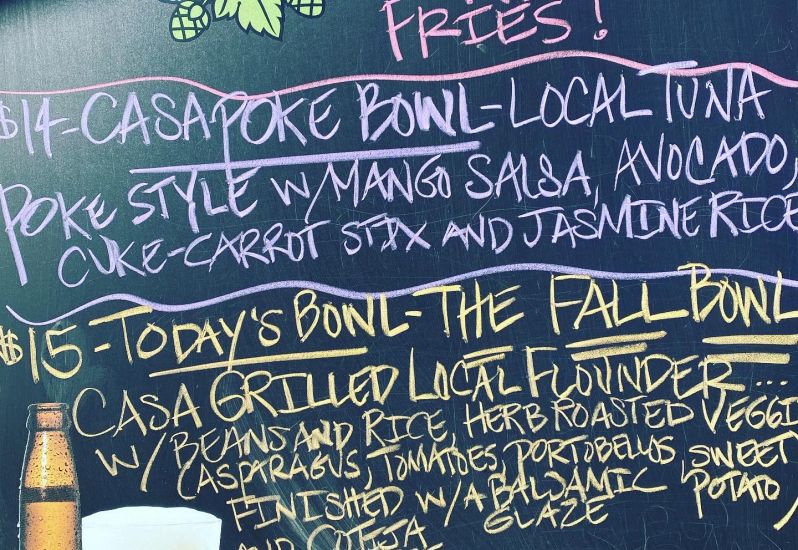 FRIES!
$14-CASA POKE BOWL-LOCAL TUNA
POKE STYLE W/MANGO SALSA, AVOCADO,
CUKE-CARROT STIX AND JASMINE RICE
$15-TODAY'S BOWL-THE FALL BOWL
CASA GRILLED LOCAL FLOUNDER...
W/BEANS AND RICE, HERB ROASTED VEGGI
(ASPARAGUS, TOMATOES, PORTOBELLOS, SWEET
POTATO)
FINISHED W/A BALSAMIC
GLAZE
AND COTIJA